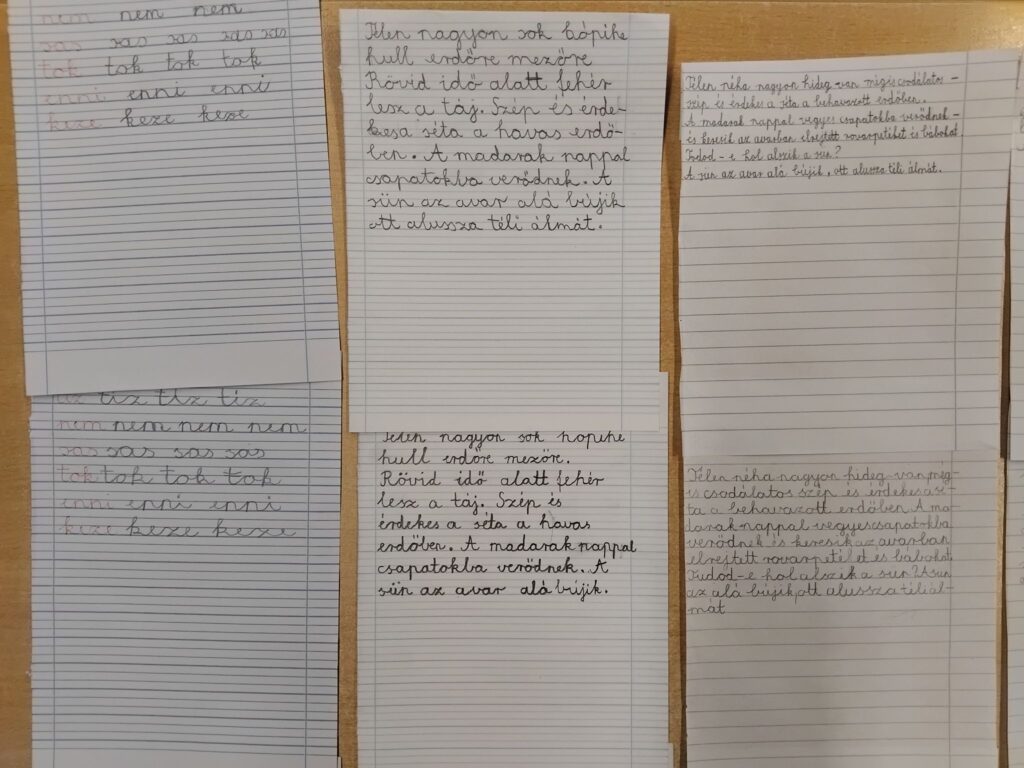 nem nem nem
sas sas sas sas sas
tok tok tok tok
enni enni enni
keze keze keze
tíz tíz tíz
nem nem nem nem
sas sas sas sas
tok tok tok tok
enni enni enni
keze keze keze
Télen nagyon sok hópihe
hull erdőre mezőre
Rövid idő alatt fehér
lesz a táj. Szép és érde-
kesa séta a havas erdő-
ben. A madarak nappal
csapatokba verődnek. A
sün az avar alá bújik
ott alussza téli álmát.
Télen nagyon sok hópihe
hull erdőre mezőre.
Rövid idő alatt fehér
lesz a táj. Szép és
érdekes a séta a havas
erdőben. A madarak nappal
csapatokba verődnek. A
sün az avar alá bújik.
Télen néha nagyon hideg van mégis csodálatos -
szép és érdekes a séta a behavazott erdőben.
A madarak nappal vegyes csapatokba verődnek -
és keresik az avarban elrejtett rovarpetéket és bábokat.
Tudod - e hol alszik a sün?
A sün az avar alá bújik, ott alussza téli álmát.
Télen néha nagyon hideg van még-
is csodálatos szép és érdekes a sé-
ta a behavazott erdőben. A ma-
darak nappal vegyes csapatokba
verődnek és keresik az avarban
elrejtett rovarpetéket és bábokat.
Tudod-e hol alszik a sün? A sün
az alá bújik, ott alussza téli ál-
mát